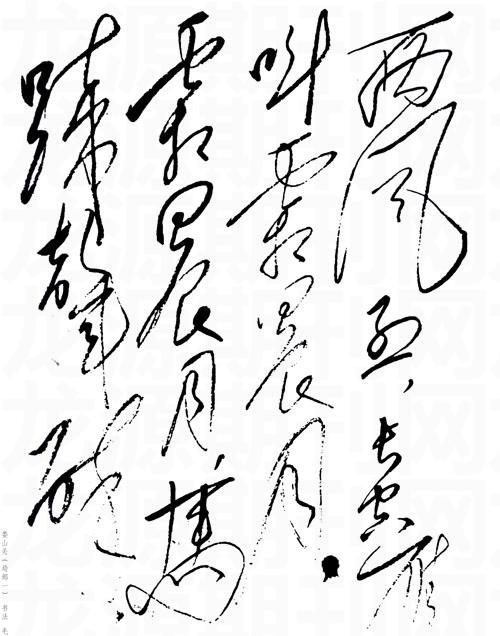 西風烈,長空雁
叫霜晨月。
霜晨月,馬
蹄聲碎
娄山关(局部一) 书法 毛